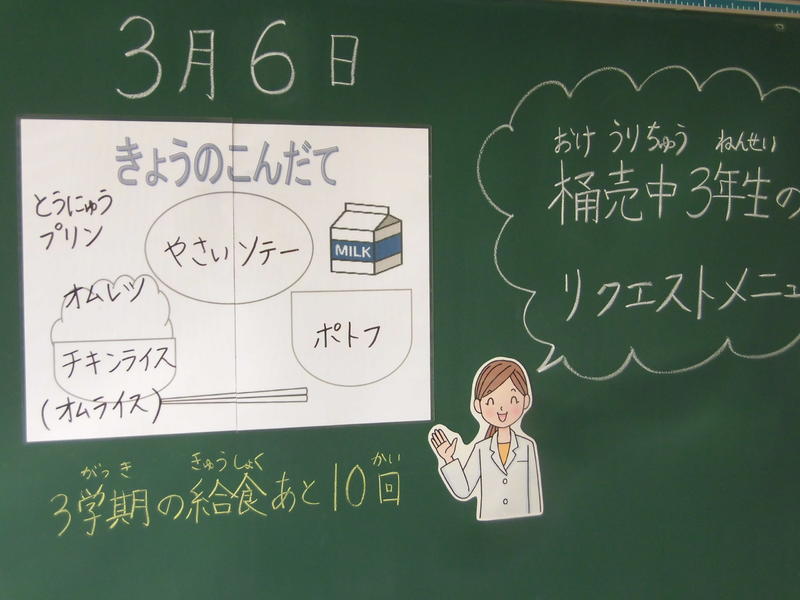 3月6日
きょうのこんだて
とうにゅう
プリン
やさいソテー
MILK
オムレツ
チキンライス
(オムライス)
ポトフ
おけ うり ちゅう ねんせい
桶売中3年生の
リクエストメニュ
がっき きゅうしょく かい
3学期の給食あと10回